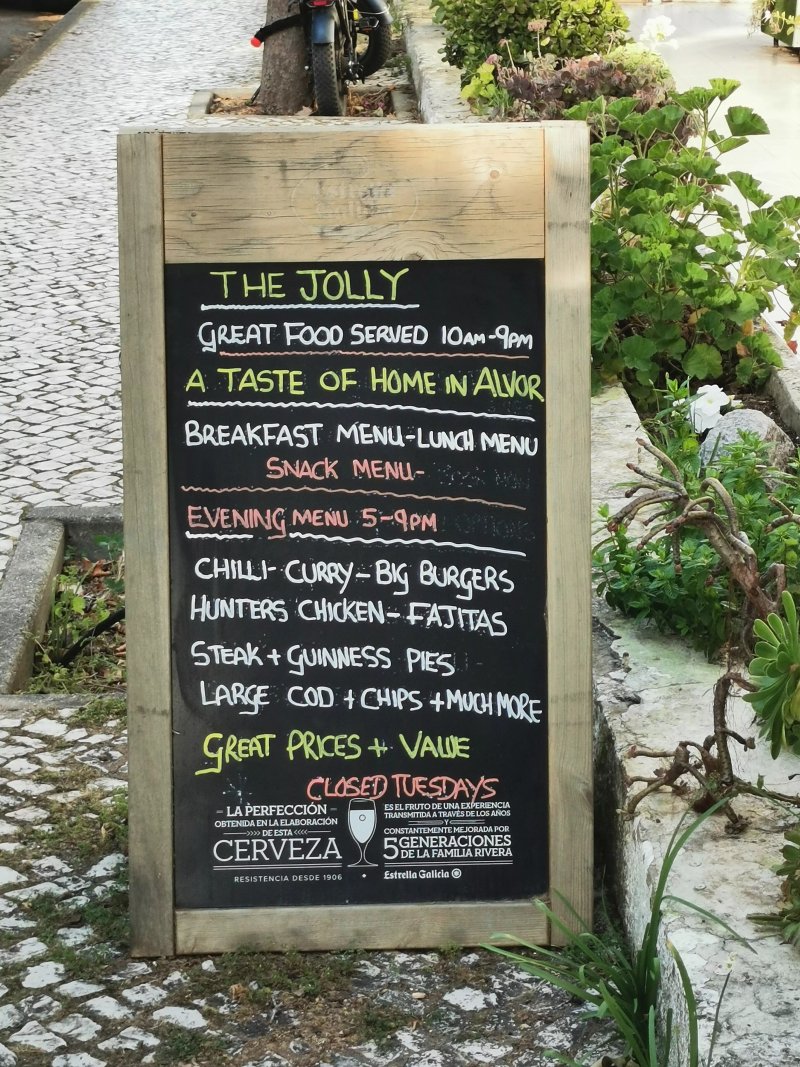 THE JOLLY
GREAT FOOD SERVED 10AM-9PM
A TASTE OF HOME IN ALVOR
BREAKFAST MENU-LUNCH MENU
SNACK MENU-
EVENING MENU 5-9PM
CHILLI- CURRY-BIG BURGERS
HUNTERS CHICKEN- FAJITAS
STEAK + GUINNESS PIES
LARGE COD + CHIPS + MUCH MORE
GREAT PRICES + VALUE
CLOSED TUESDAYS
- LA PERFECCIÓN -
OBTENIDA EN LA ELABORACIÓN
>>>> DE ESTA <<<<
CERVEZA
RESISTENCIA DESDE 1906
ES EL FRUTO DE UNA EXPERIENCIA
TRANSMITIDA A TRAVÉS DE LOS AÑOS
Y
CONSTANTEMENTE MEJORADA POR
5 GENERACIONES
DE LA FAMILIA RIVERA
Estrella Galicia